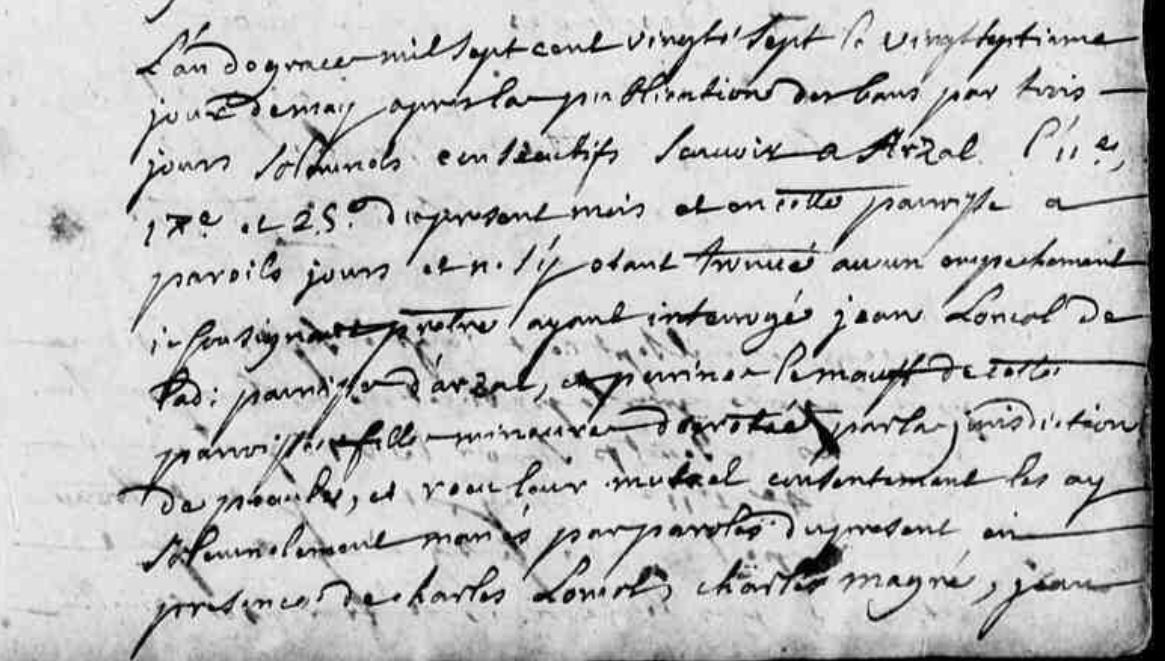 L'an de grace mil sept cent vingt sept le vingt septieme
jour de may apres la publication des bans par trois
jours sólennels consecutifs sauvoir a Arzal l'11e,
17e et 25e du present mois et en cette parroisse a
pareils jours et n. s'y etant trouvé aucun empechement
je sousignant pretre ayant interrogé jean Loncol de
lad: parroisse d'arzal, et perrine le mauff de cette
parroisse fille mineure decretée par la jurisdiction
de peaule, et receu leur mutuel consentement les ay
sólennelement mariés par paroles du present en
presence de charles Loncol, charles magré, jean